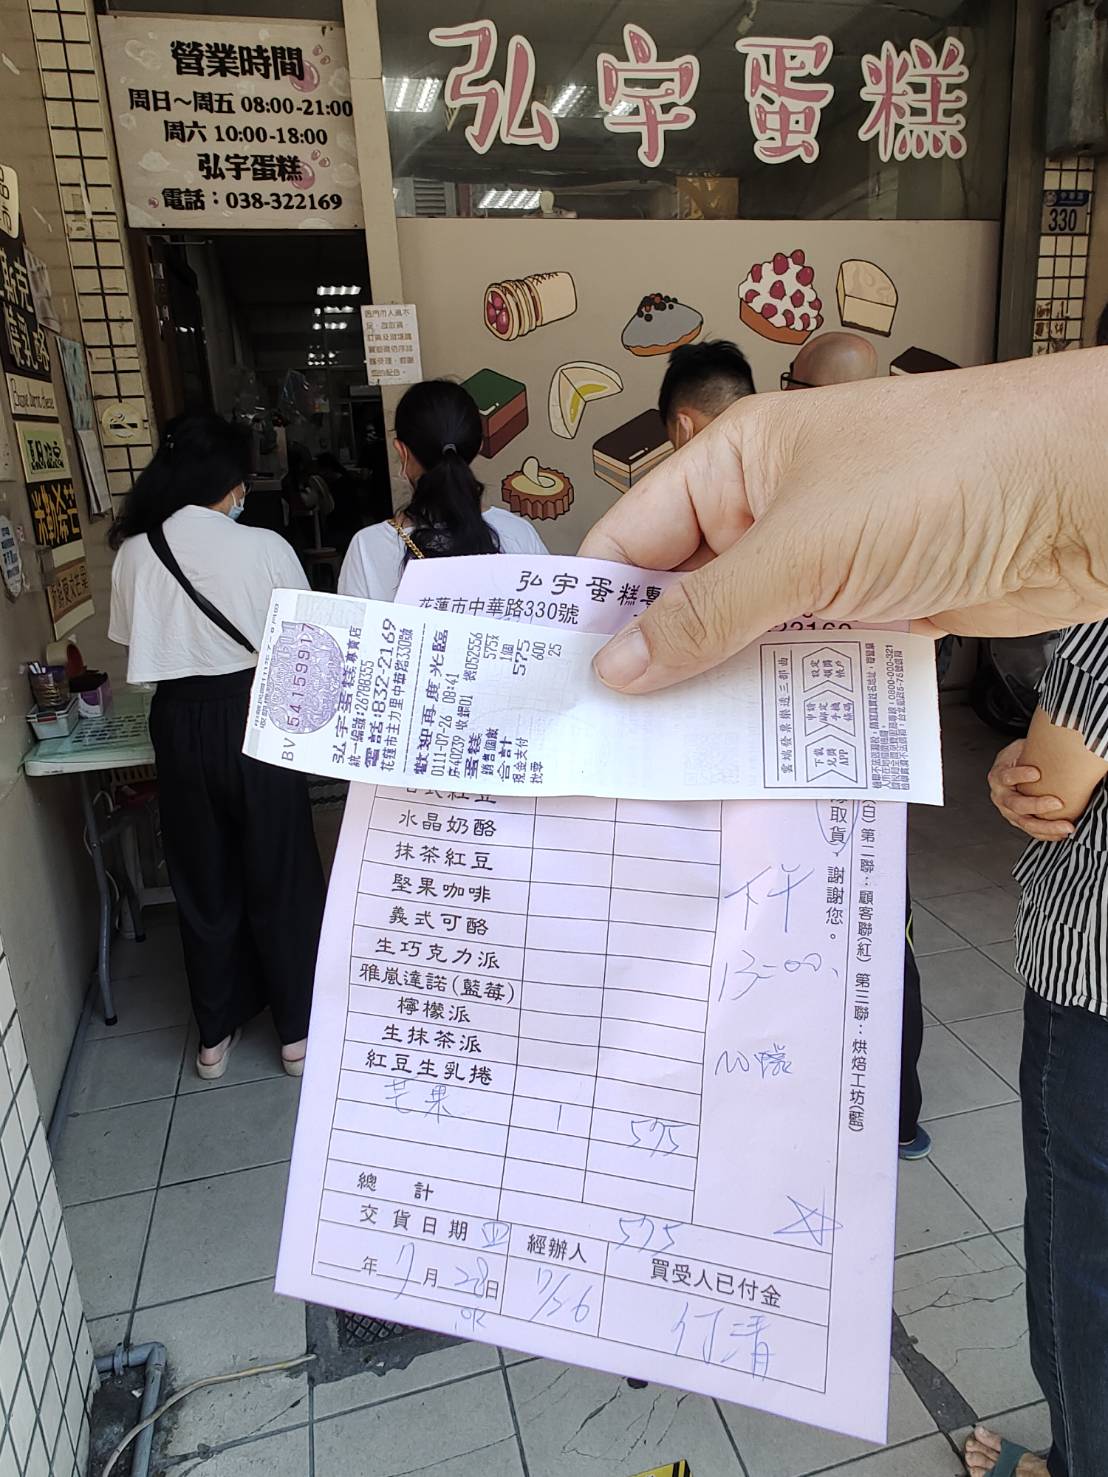 營業時間
周日～周五 08:00-21:00
周六 10:00-18:00
弘宇蛋糕
電話：038-322169
弘宇蛋糕
330
弘宇蛋糕專
花蓮市中華路330號
BV 54159917
弘宇蛋糕專賣店
統一編號:26788355
電話:832-2169
花蓮市主力里中華路330號
歡迎再度光臨
0111-07-26 08:41
收銀01
蛋糕 575x
銷售個數 1個
合計 575
現金支付 600
找零 25
雲端發票樂透三部曲
下載兌獎APP
申請/綁定手機條碼
設定領獎帳戶
0800-000-321
水晶奶酪
抹茶紅豆
堅果咖啡
義式可酪
生巧克力派
雅嵐達諾(藍莓)
檸檬派
生抹茶派
紅豆生乳捲
芒果 1 575
總計 575
交貨日期 四
年7月28日
OK
經辦人
7/26
買受人已付金
付清
取貨，謝謝您。
下午
13:00
(白) 第二聯：顧客聯(紅) 第三聯：烘焙工坊(藍)